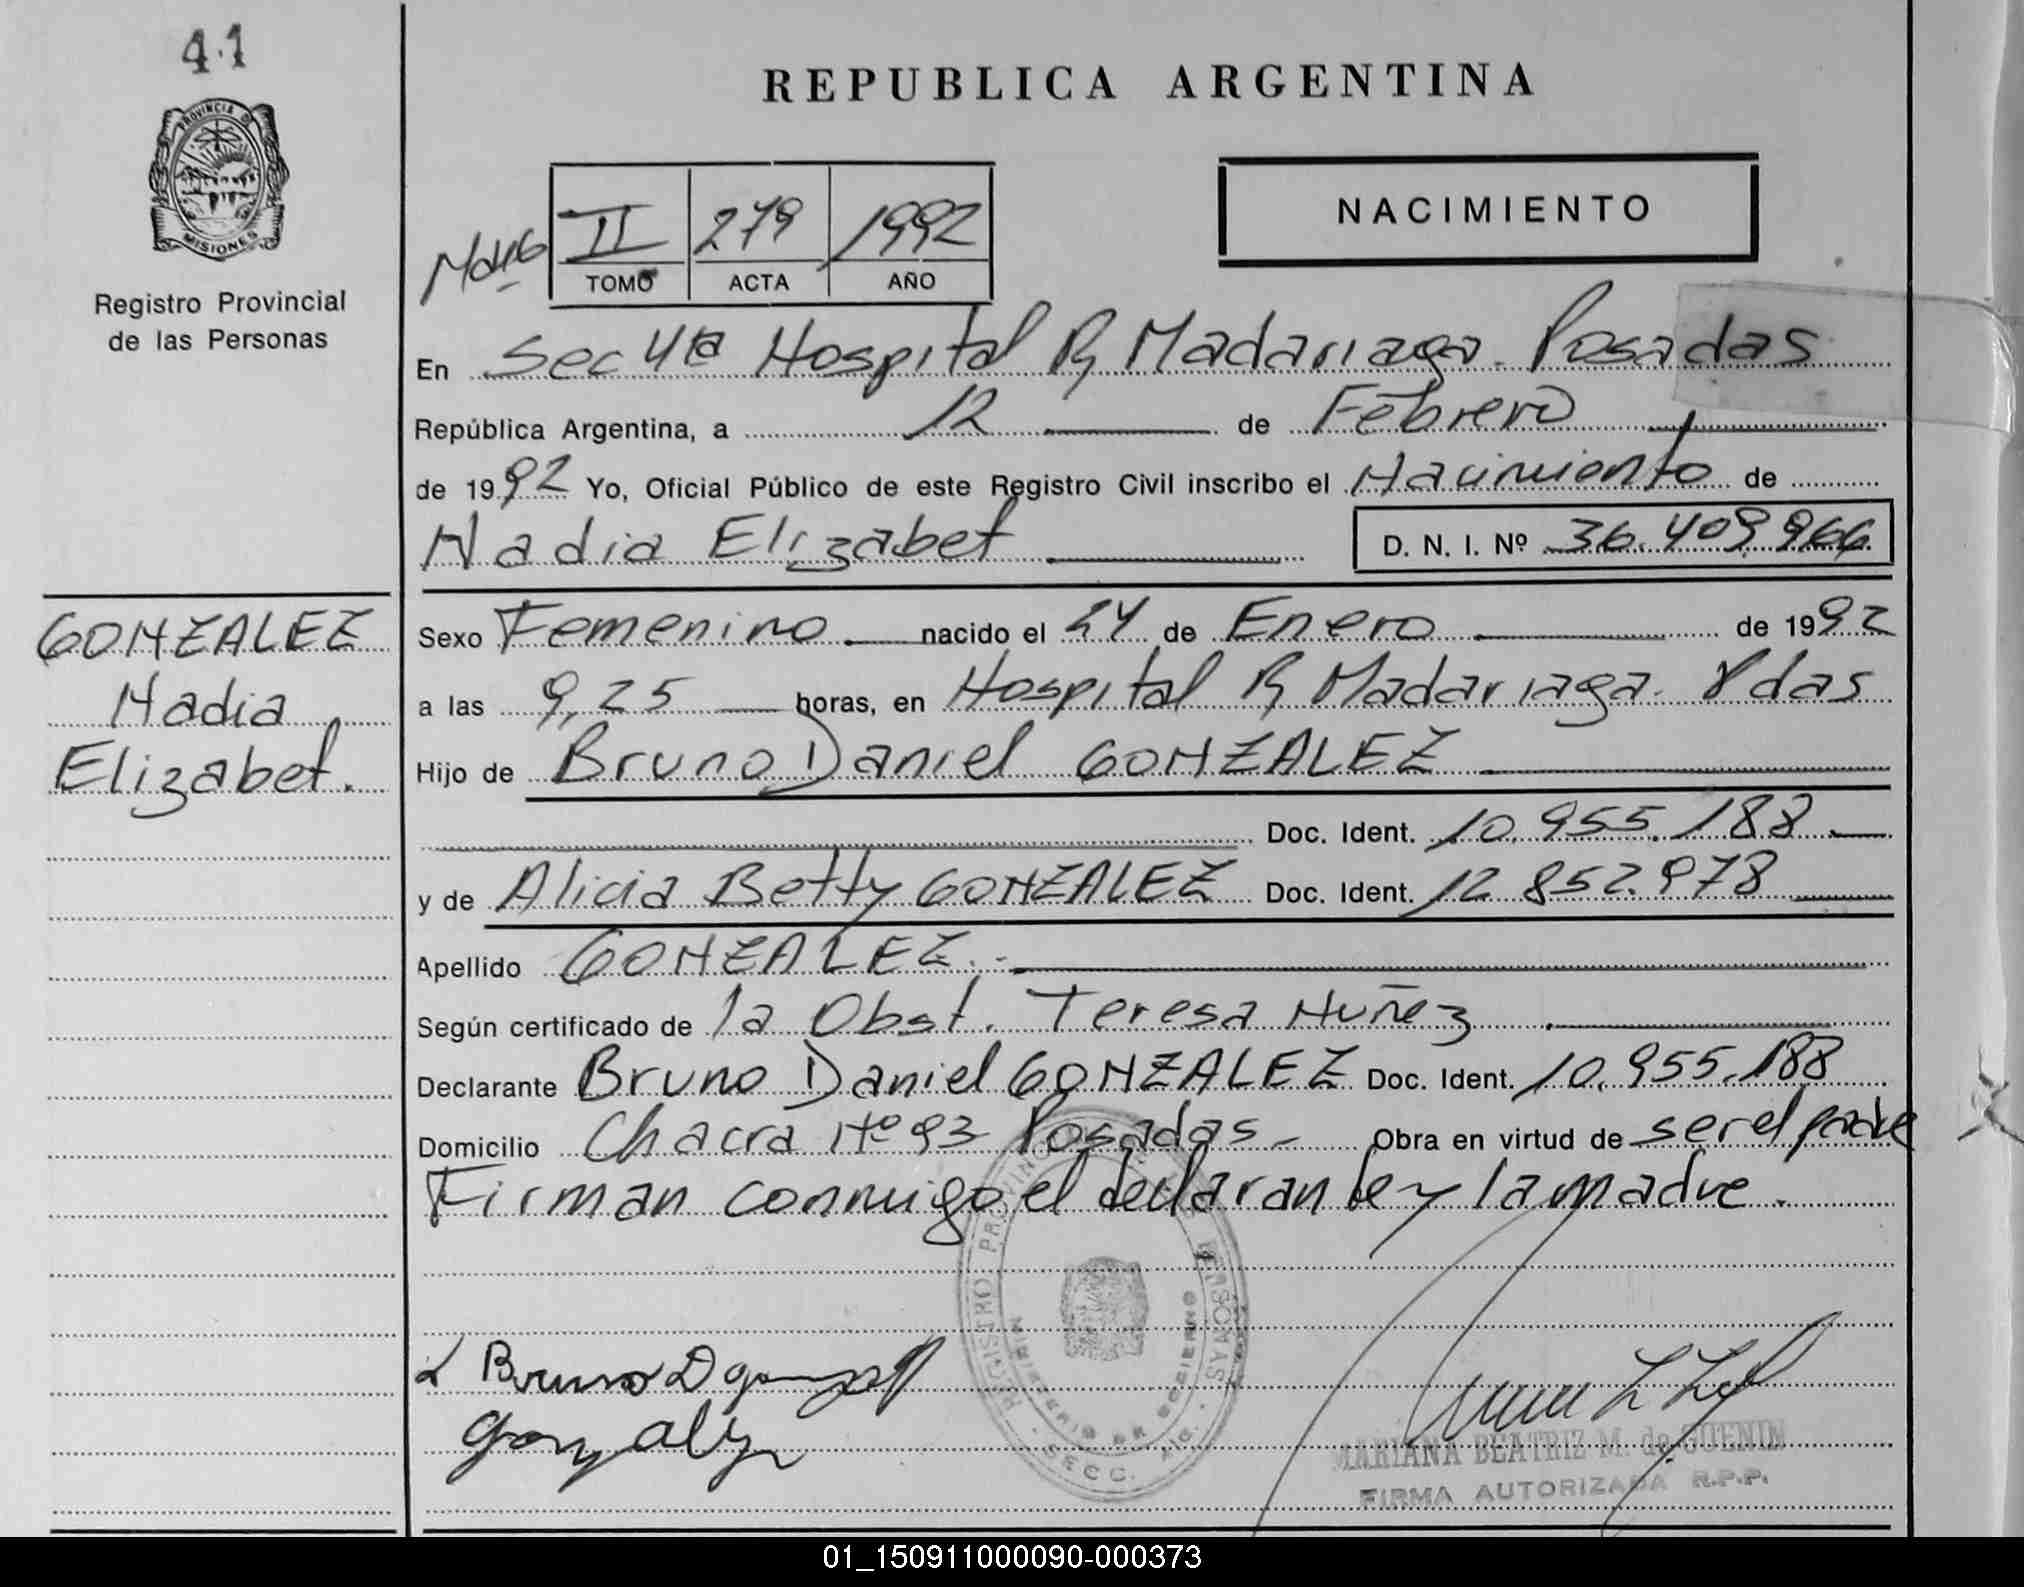 41
PROVINCIA DE
MISIONES
Registro Provincial
de las Personas
GONZALEZ
Nadia
Elizabet.
REPUBLICA ARGENTINA
II 279 1992
TOMO ACTA AÑO
NACIMIENTO
En Sec 4ta Hospital R, Madariaga. Posadas
República Argentina, a 12 de Febrero
de 1992 Yo, Oficial Público de este Registro Civil inscribo el Nacimiento de
Nadia Elizabet D. N. I. Nº 36.409.966
Sexo Femenino nacido el 24 de Enero de 1992
a las 9,25 horas, en Hospital R, Madariaga. Pdas
Hijo de Bruno Daniel GONZALEZ
Doc. Ident. 10.955.188
y de Alicia Betty GONZALEZ Doc. Ident. 12.852.978
Apellido GONZALEZ.-
Según certificado de la Obst. Teresa Nuñez
Declarante Bruno Daniel GONZALEZ Doc. Ident. 10.955.188
Domicilio Chacra Nº 93 Posadas- Obra en virtud de ser el padre
Firman conmigo el declarante y la madre.
REGISTRO PROVINCIAL DE LAS PERSONAS
MINISTERIO DE GOBIERNO
SECC.
Bruno D
MARIANA BEATRIZ M. de GUENIN
FIRMA AUTORIZADA R.P.P.
01_150911000090-000373